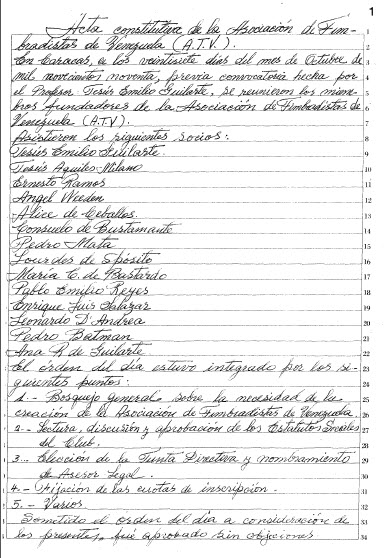 1
Acta constitutiva de la Asociación de Tim-
bradistas de Venezuela (A.T.V.).
En Caracas, a los veintisiete días del mes de Octubre de
mil novecientos noventa, previa convocatoria hecha por
el Profesor Jesús Emilio Guilarte, se reunieron los miem-
bros fundadores de la Asociación de Timbradistas de
Venezuela (A.T.V.)
Asistieron los siguientes socios:
Jesús Emilio Guilarte.
Jesús Aquiles Milano
Ernesto Ramos
Angel Weeden
Alice de Ceballos.
Consuelo de Bustamante
Pedro Mata
Lourdes de Spósito
María C. de Bastardo
Pablo Emilio Reyes
Enrique Luis Salazar
Leonardo D'Andrea
Pedro Batman
Ana R de Guilarte
El orden del día estuvo integrado por los si-
guientes puntos:
1.- Bosquejo general sobre la necesidad de la
creación de la Asociación de Timbradistas de Venezuela.
2.- Lectura, discusión y aprobación de los Estatutos Sociales
del Club.
3.. Elección de la Junta Directiva y nombramiento
de Asesor Legal.
4.- Fijación de las cuotas de inscripción.
5.- Varios
Sometido el orden del día a consideración de
los presentes, fué aprobado sin objeciones